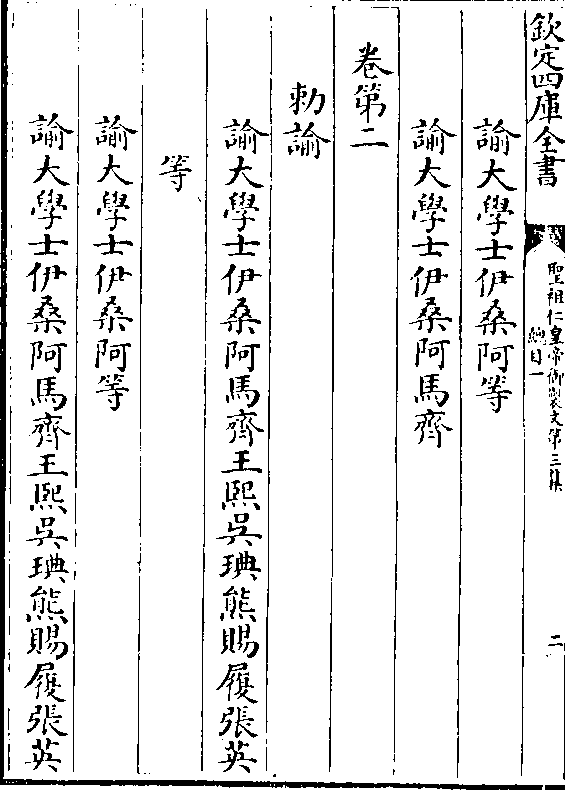 欽定四庫全書
聖祖仁皇帝御製文第三集
總目一
二
諭大學士伊桑阿等
諭大學士伊桑阿馬齊
卷第二
勅諭
諭大學士伊桑阿馬齊王熙吳琠熊賜履張英
等
諭大學士伊桑阿等
諭大學士伊桑阿馬齊王熙吳琠熊賜履張英